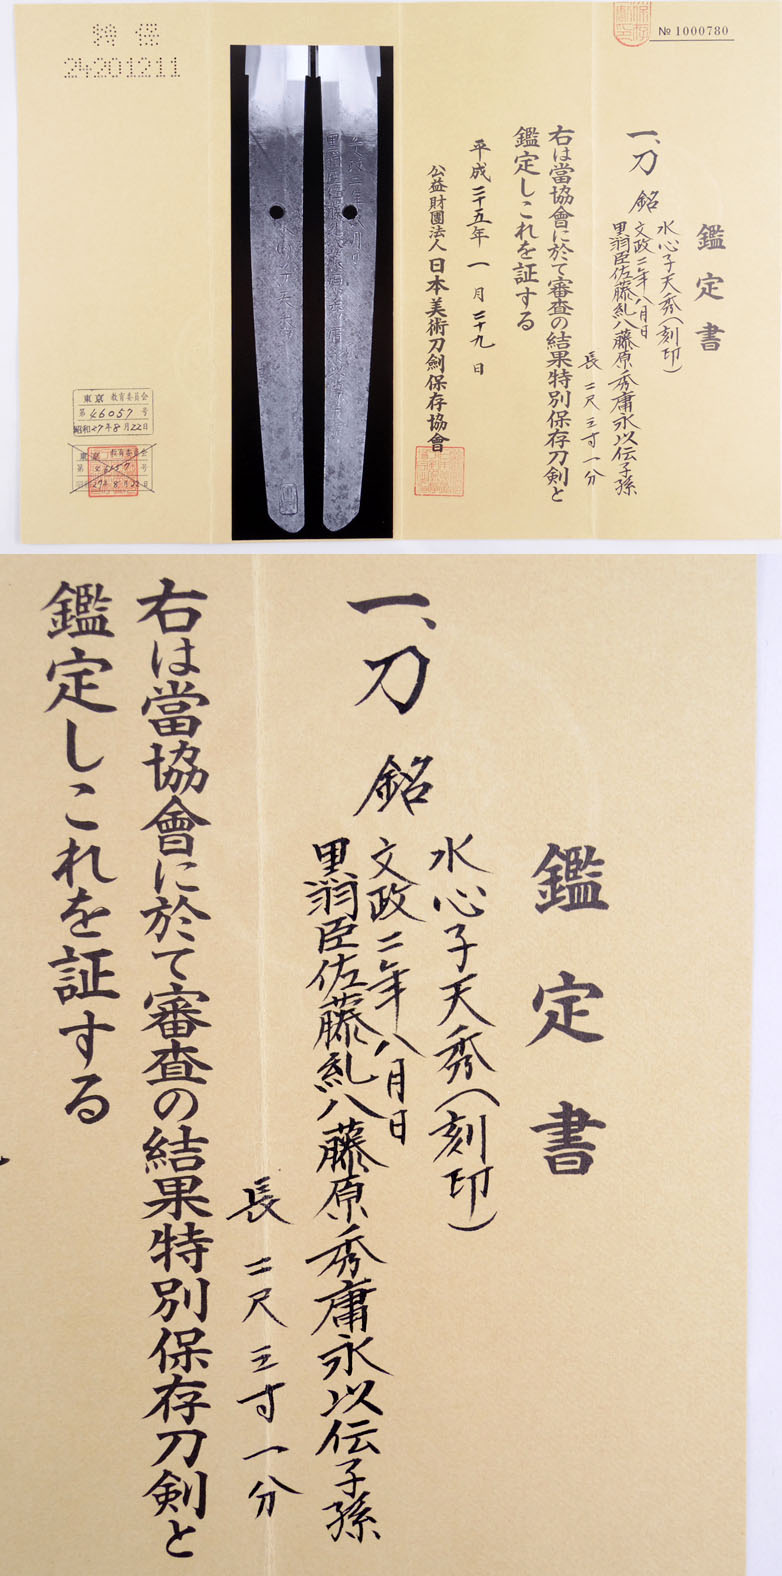 № 1000780
鑑定書
一、刀 銘
水心子天秀（刻印）
文政二年八月日
里翁臣佐藤糺八藤原秀庸永以伝子孫
長 二尺三寸一分
右は當協會に於て審査の結果特別保存刀剣と
鑑定しこれを証する
平成二十五年一月二十九日
公益財團法人日本美術刀劍保存協會
特保
24201211
東京 教育委員会
第 46057 号
昭和27年8月22日
東京 教育委員会
第 号
27年8月22日
鑑定書
一、刀 銘
水心子天秀（刻印）
文政二年八月日
里翁臣佐藤糺八藤原秀庸永以伝子孫
長 二尺三寸一分
右は當協會に於て審査の結果特別保存刀剣と
鑑定しこれを証する